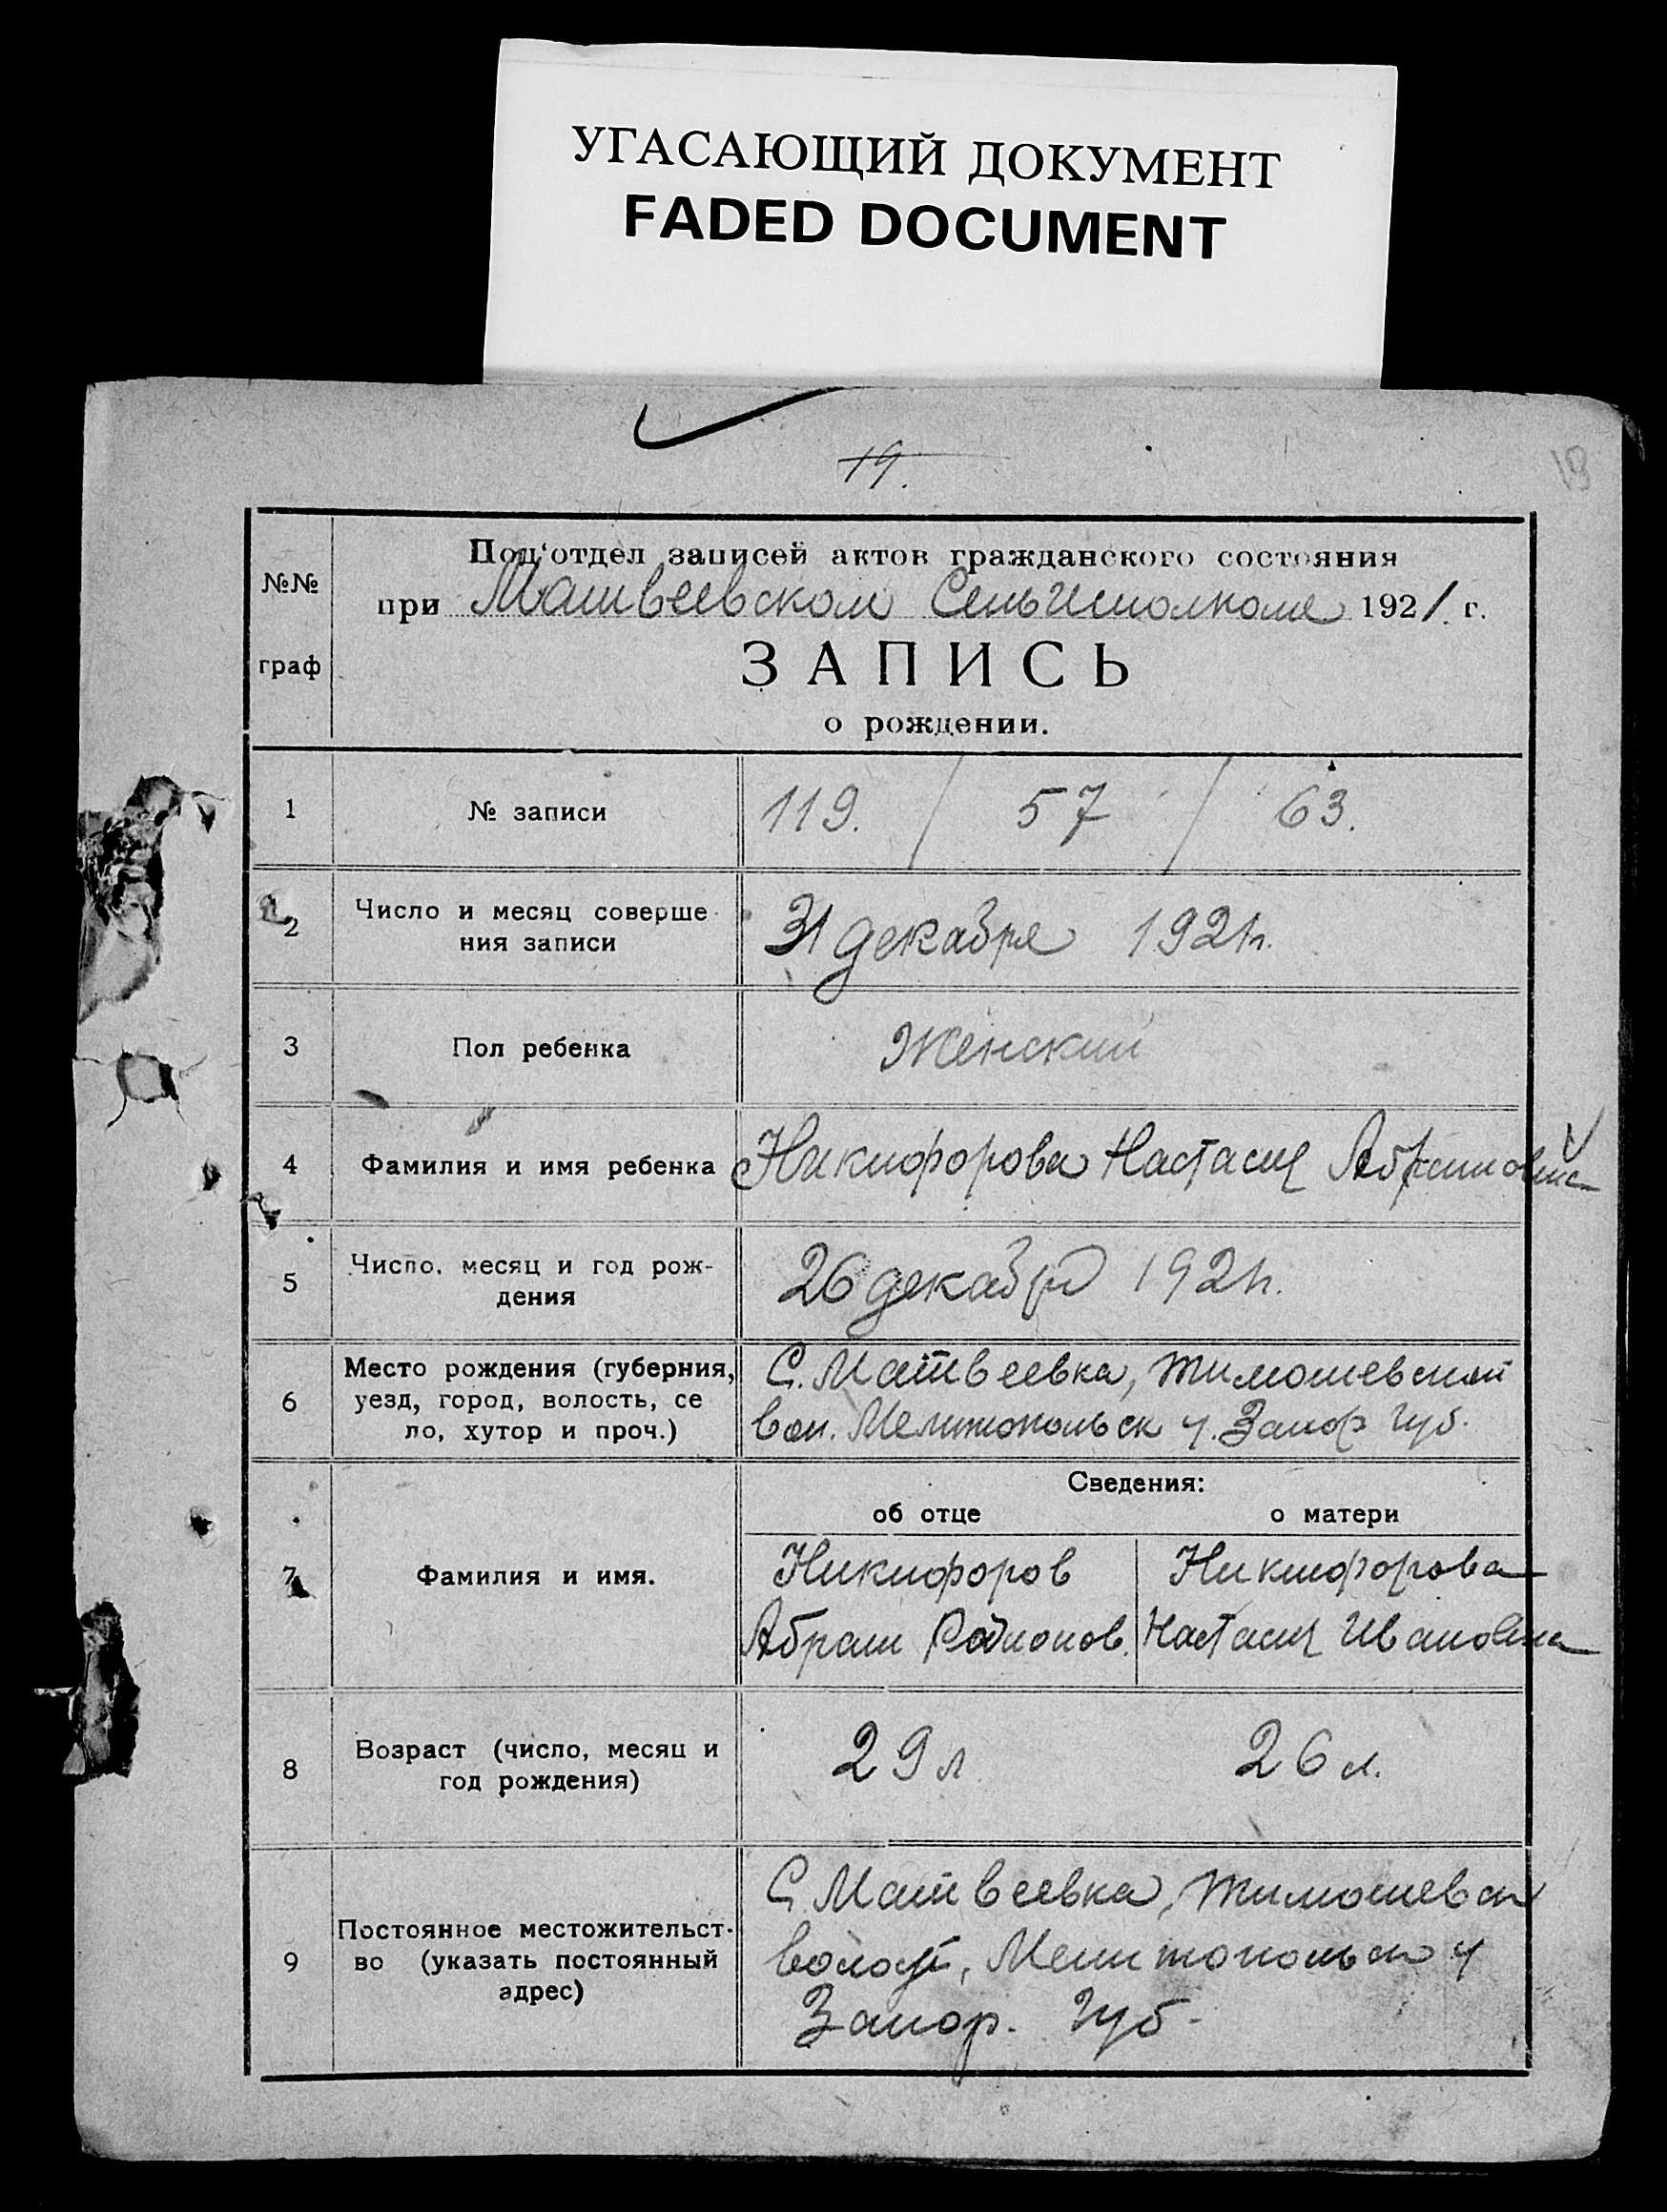 УГАСАЮЩИЙ ДОКУМЕНТ
FADED DOCUMENT
19.
19
№№
граф
Под'отдел записей актов гражданского состояния
при Матвеевском СельИсполкоме 1921. г.
ЗАПИСЬ
о рождении.
1 № записи 119. / 57 / 63.
2 Число и месяц соверше
ния записи
31 декабря 1921г.
3 Пол ребенка Женский
4 Фамилия и имя ребенка Никифорова Настасия Абрамовна
5 Число, месяц и год рож-
дения
26 декабря 1921г.
6 Место рождения (губерния,
уезд, город, волость, се
ло, хутор и проч.)
С. Матвеевка, Тимошевской
вол. Мелитопольск у. Запор губ.
Сведения:
об отце о матери
7 Фамилия и имя.
Никифоров Никифорова
Абрам Родионов. Настасия Ивановна
8 Возраст (число, месяц и
год рождения)
29 л 26 л.
9 Постоянное местожительст-
во (указать постоянный
адрес)
С. Матвеевка, Тимошевск
волост, Мелитопольск у
Запор. Губ.